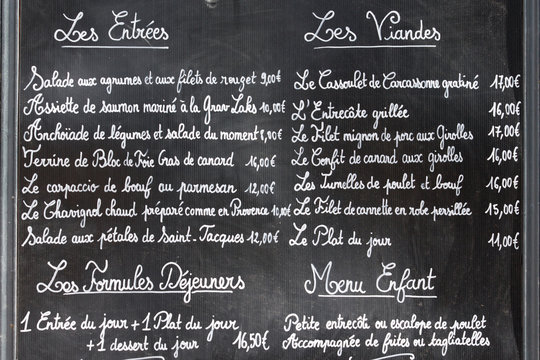 Les Entrées
Salade aux agrumes et aux filets de rouget 9,00€
Assiette de saumon mariné à la Grav Laks 10,00€
Anchoïade de légumes et salade du moment 8,90€
Terrine de Bloc de Foie Gras de canard 16,00€
Le carpaccio de bœuf au parmesan 12,00€
Le Chavignol chaud préparé comme en Provence 10,00€
Salade aux pétales de Saint-Jacques 12,00€
Les Viandes
Le Cassoulet de Carcassonne gratiné 17,00€
L'Entrecôte grillée 16,00€
Le Filet mignon de porc aux Girolles 17,00€
Le Confit de canard aux girolles 16,00€
Les Jumelles de poulet et bœuf 16,00€
Le Filet de cannette en robe persillée 15,00€
Le Plat du jour 11,00€
Les Formules Déjeuners
1 Entrée du jour + 1 Plat du jour
+ 1 dessert du jour 16,50€
Menu Enfant
Petite entrecôt ou escalope de poulet
Accompagnée de frites ou tagliatelles